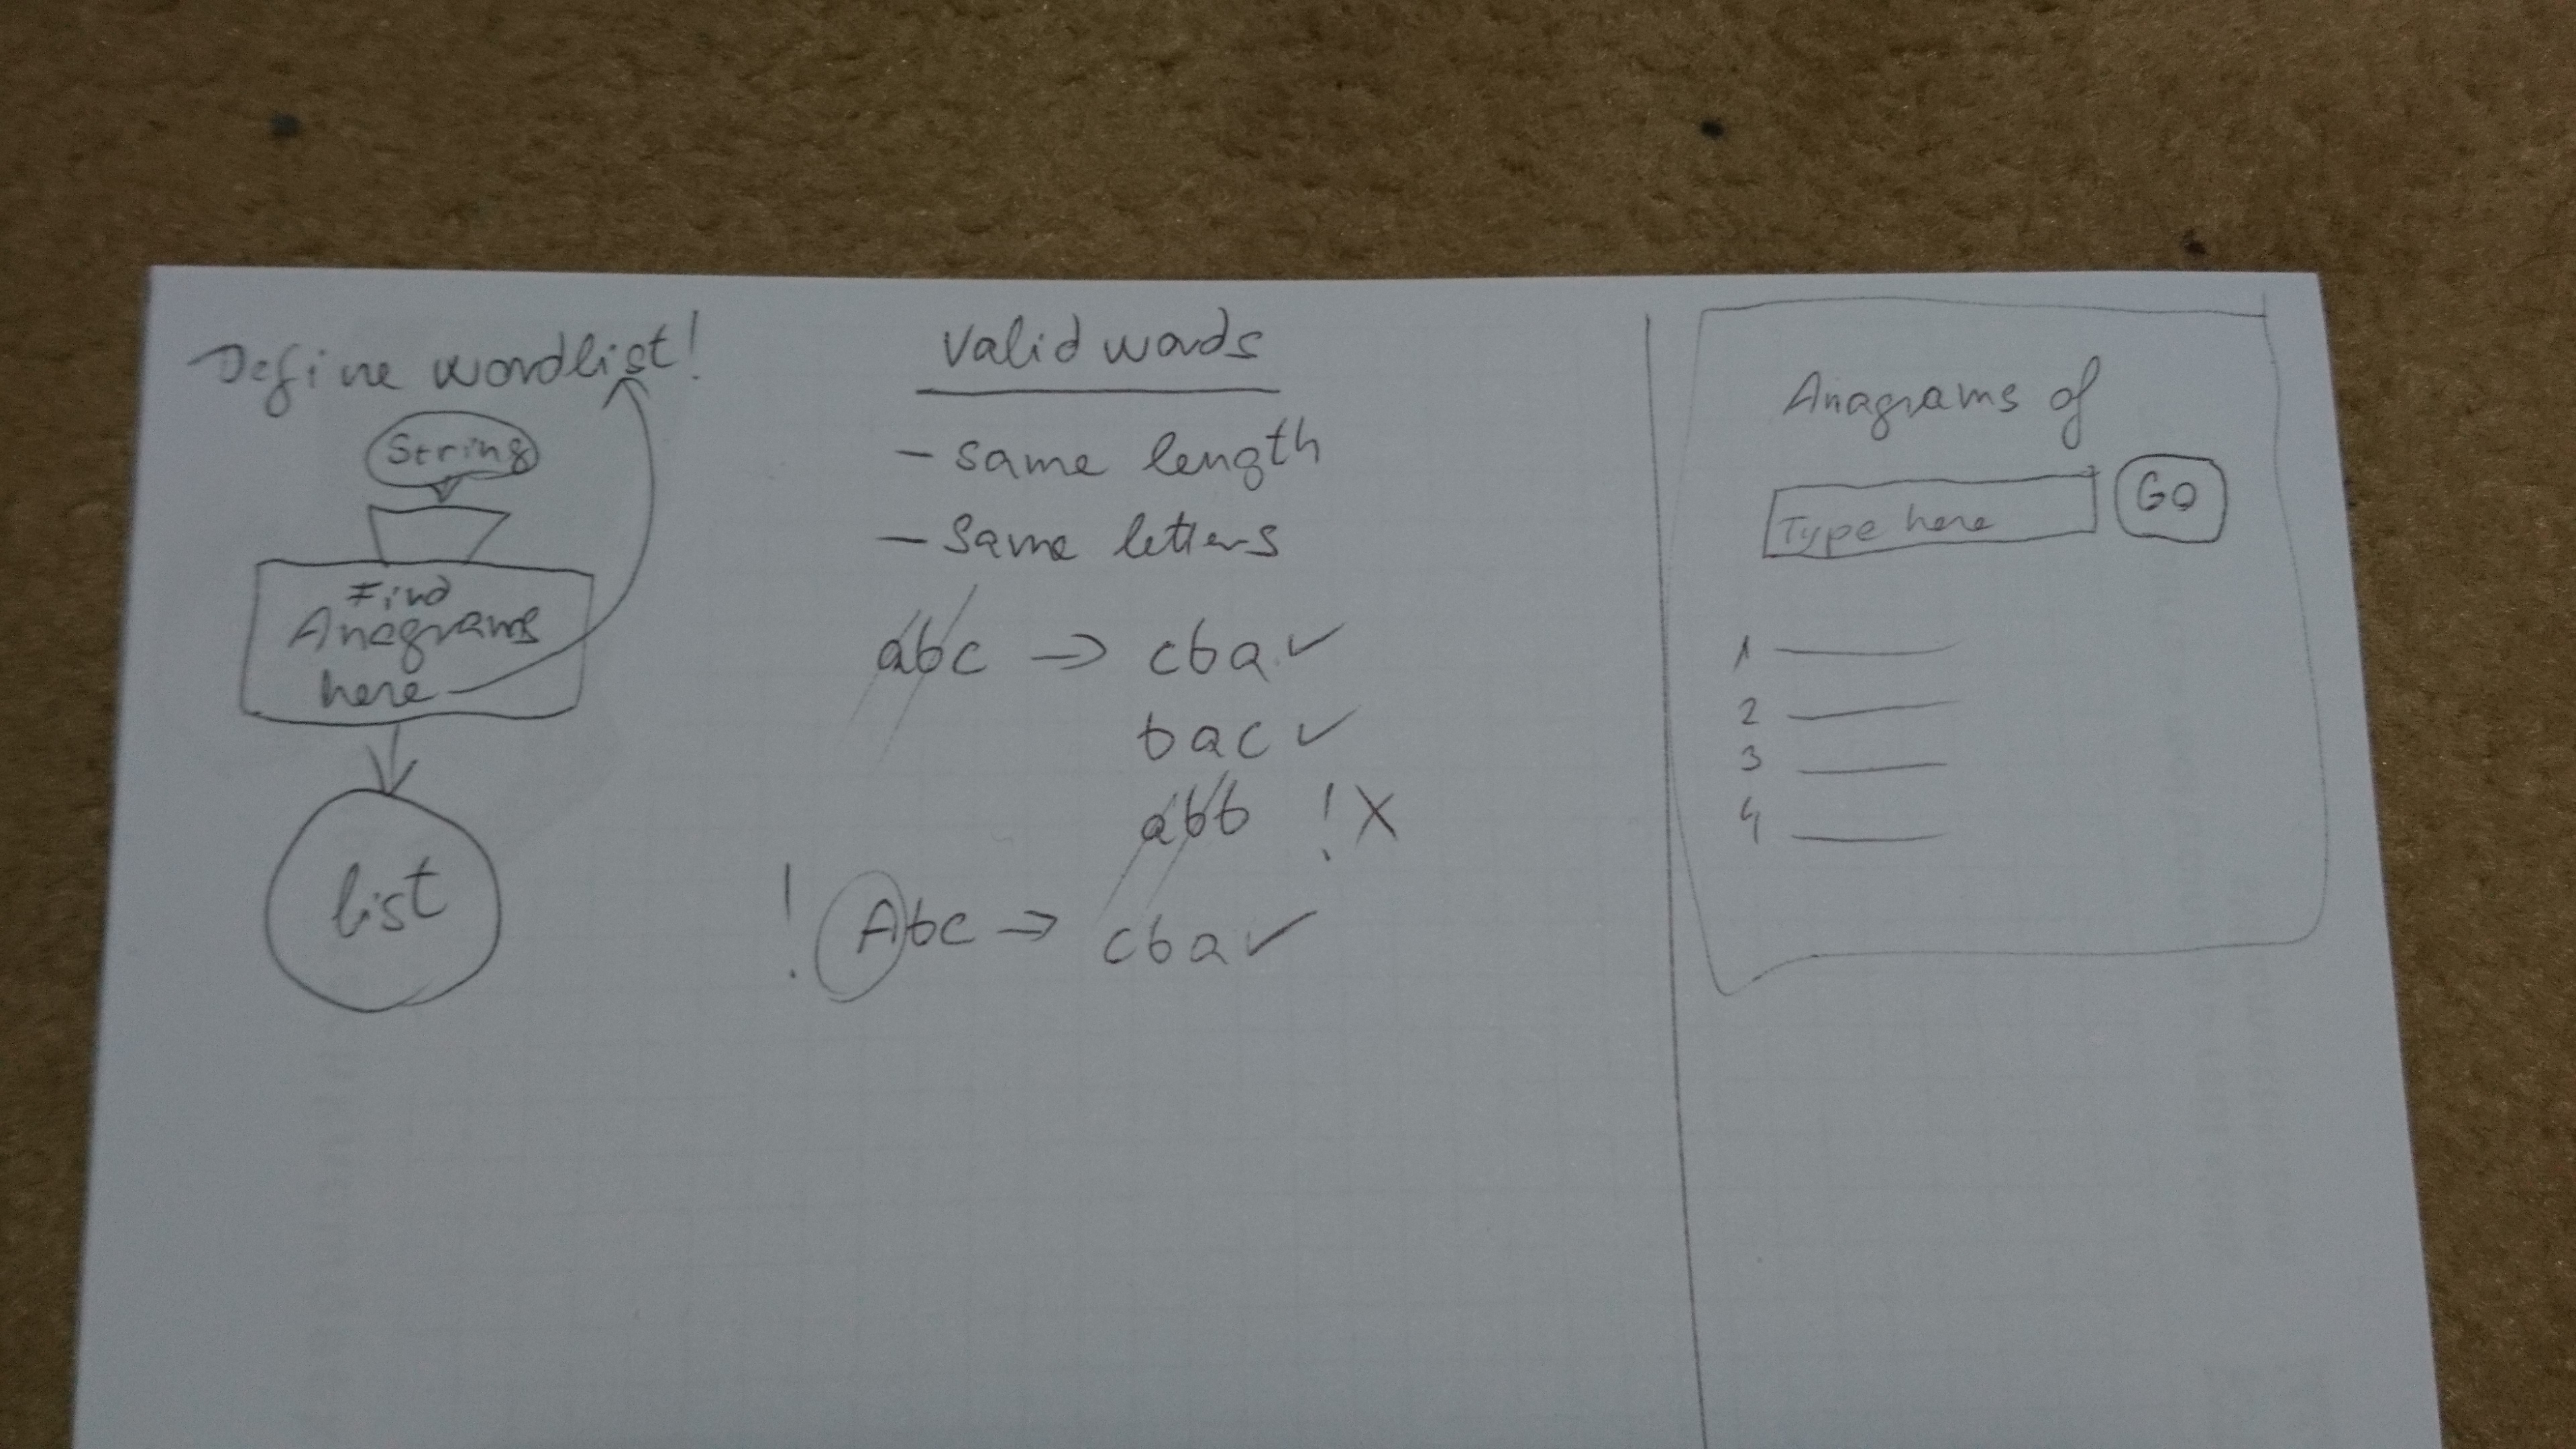 Define wordlist!
String
Find
Anagrams
here
list
Valid words
- same length
- Same letters
abc → cba ✓
bac ✓
abb ! X
! Abc → cba ✓
Anagrams of
Type here
GO
1
2
3
4